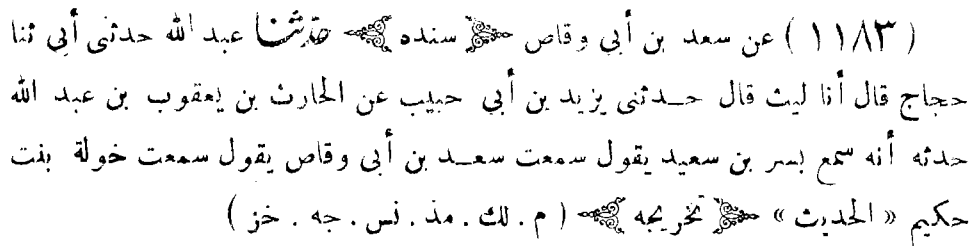 ( ١١٨٣ ) عن سعد بن أبي وقاص ﴿ سنده ﴾ حدثنا عبد الله حدثنى أبى ثنا
حجاج قال أنا ليث قال حدثنى يزيد بن أبي حبيب عن الحارث بن يعقوب بن عبد الله
حدثه أنه سمع بسر بن سعيد يقول سمعت سعد بن أبى وقاص يقول سمعت خولة بنت
حكيم « الحديث » ﴿ تخريجه ﴾ ( م . لك . مذ . نس . جه . خز )